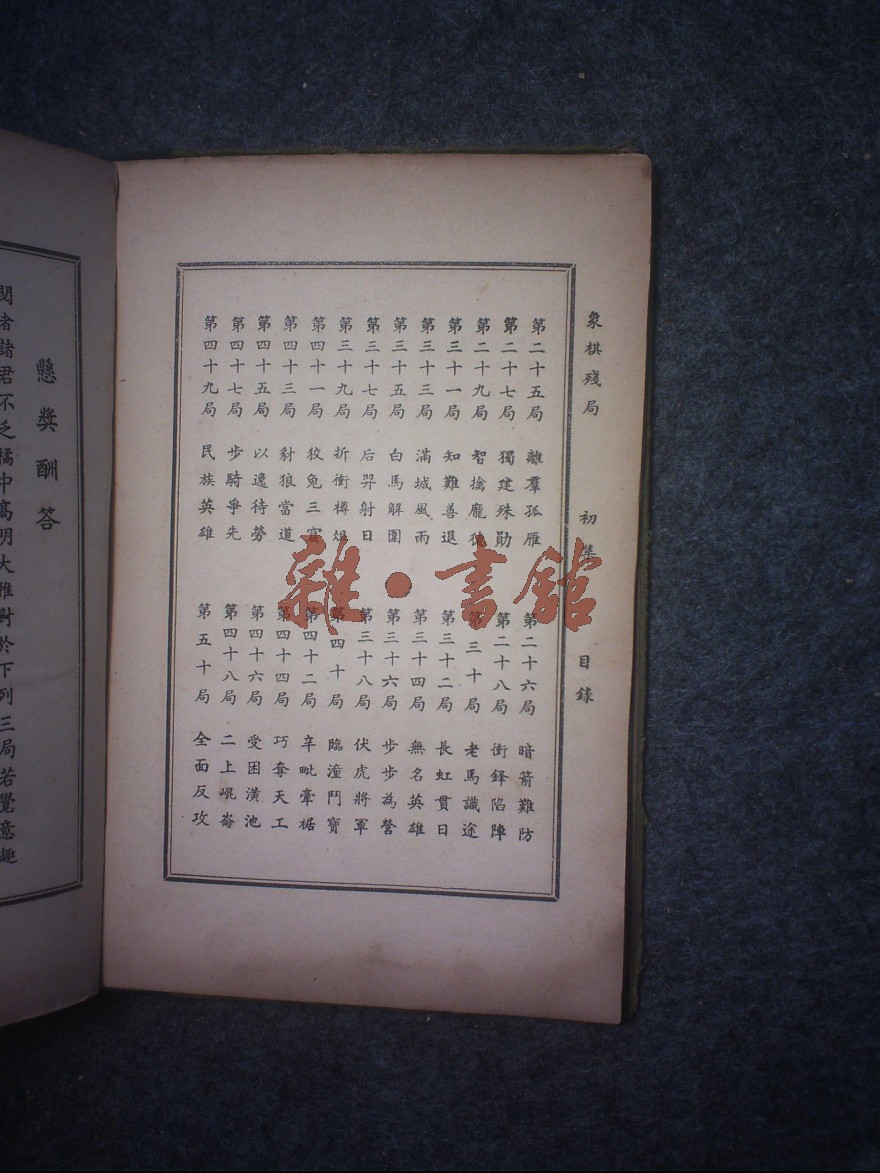 象棋殘局 初集 目錄
第二十五局 離羣孤雁 第二十六局 暗箭難防
第二十七局 獨建殊勛 第二十八局 衝鋒陷陣
第二十九局 智擒龐德 第三十局 老馬識途
第三十一局 知難善退 第三十二局 長虹貫日
第三十三局 滿城風雨 第三十四局 無名英雄
第三十五局 白馬解圍 第三十六局 步步為營
第三十七局 后羿射日 第三十八局 伏虎將軍
第三十九局 折衝樽俎 第四十局 臨潼鬥寶
第四十一局 狡兔三窟 第四十二局 辛毗牽裾
第四十三局 豺狼當道 第四十四局 巧奪天工
第四十五局 以逸待勞 第四十六局 受困潢池
第四十七局 步騎爭先 第四十八局 二上崐崙
第四十九局 民族英雄 第五十局 全面反攻
懸獎酬答
閱者諸君不乏橘中高明大雅對於下列三局若覺意趣
雜·書館